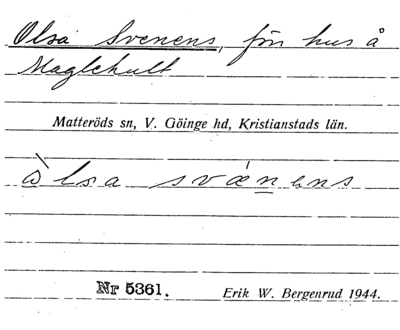 Olsa Svenens, förr hus å
Maglehult
Matteröds sn, V. Göinge hd, Kristianstads län.
òlsa svǽnens
Nr 5361.
Erik W. Bergenrud 1944.